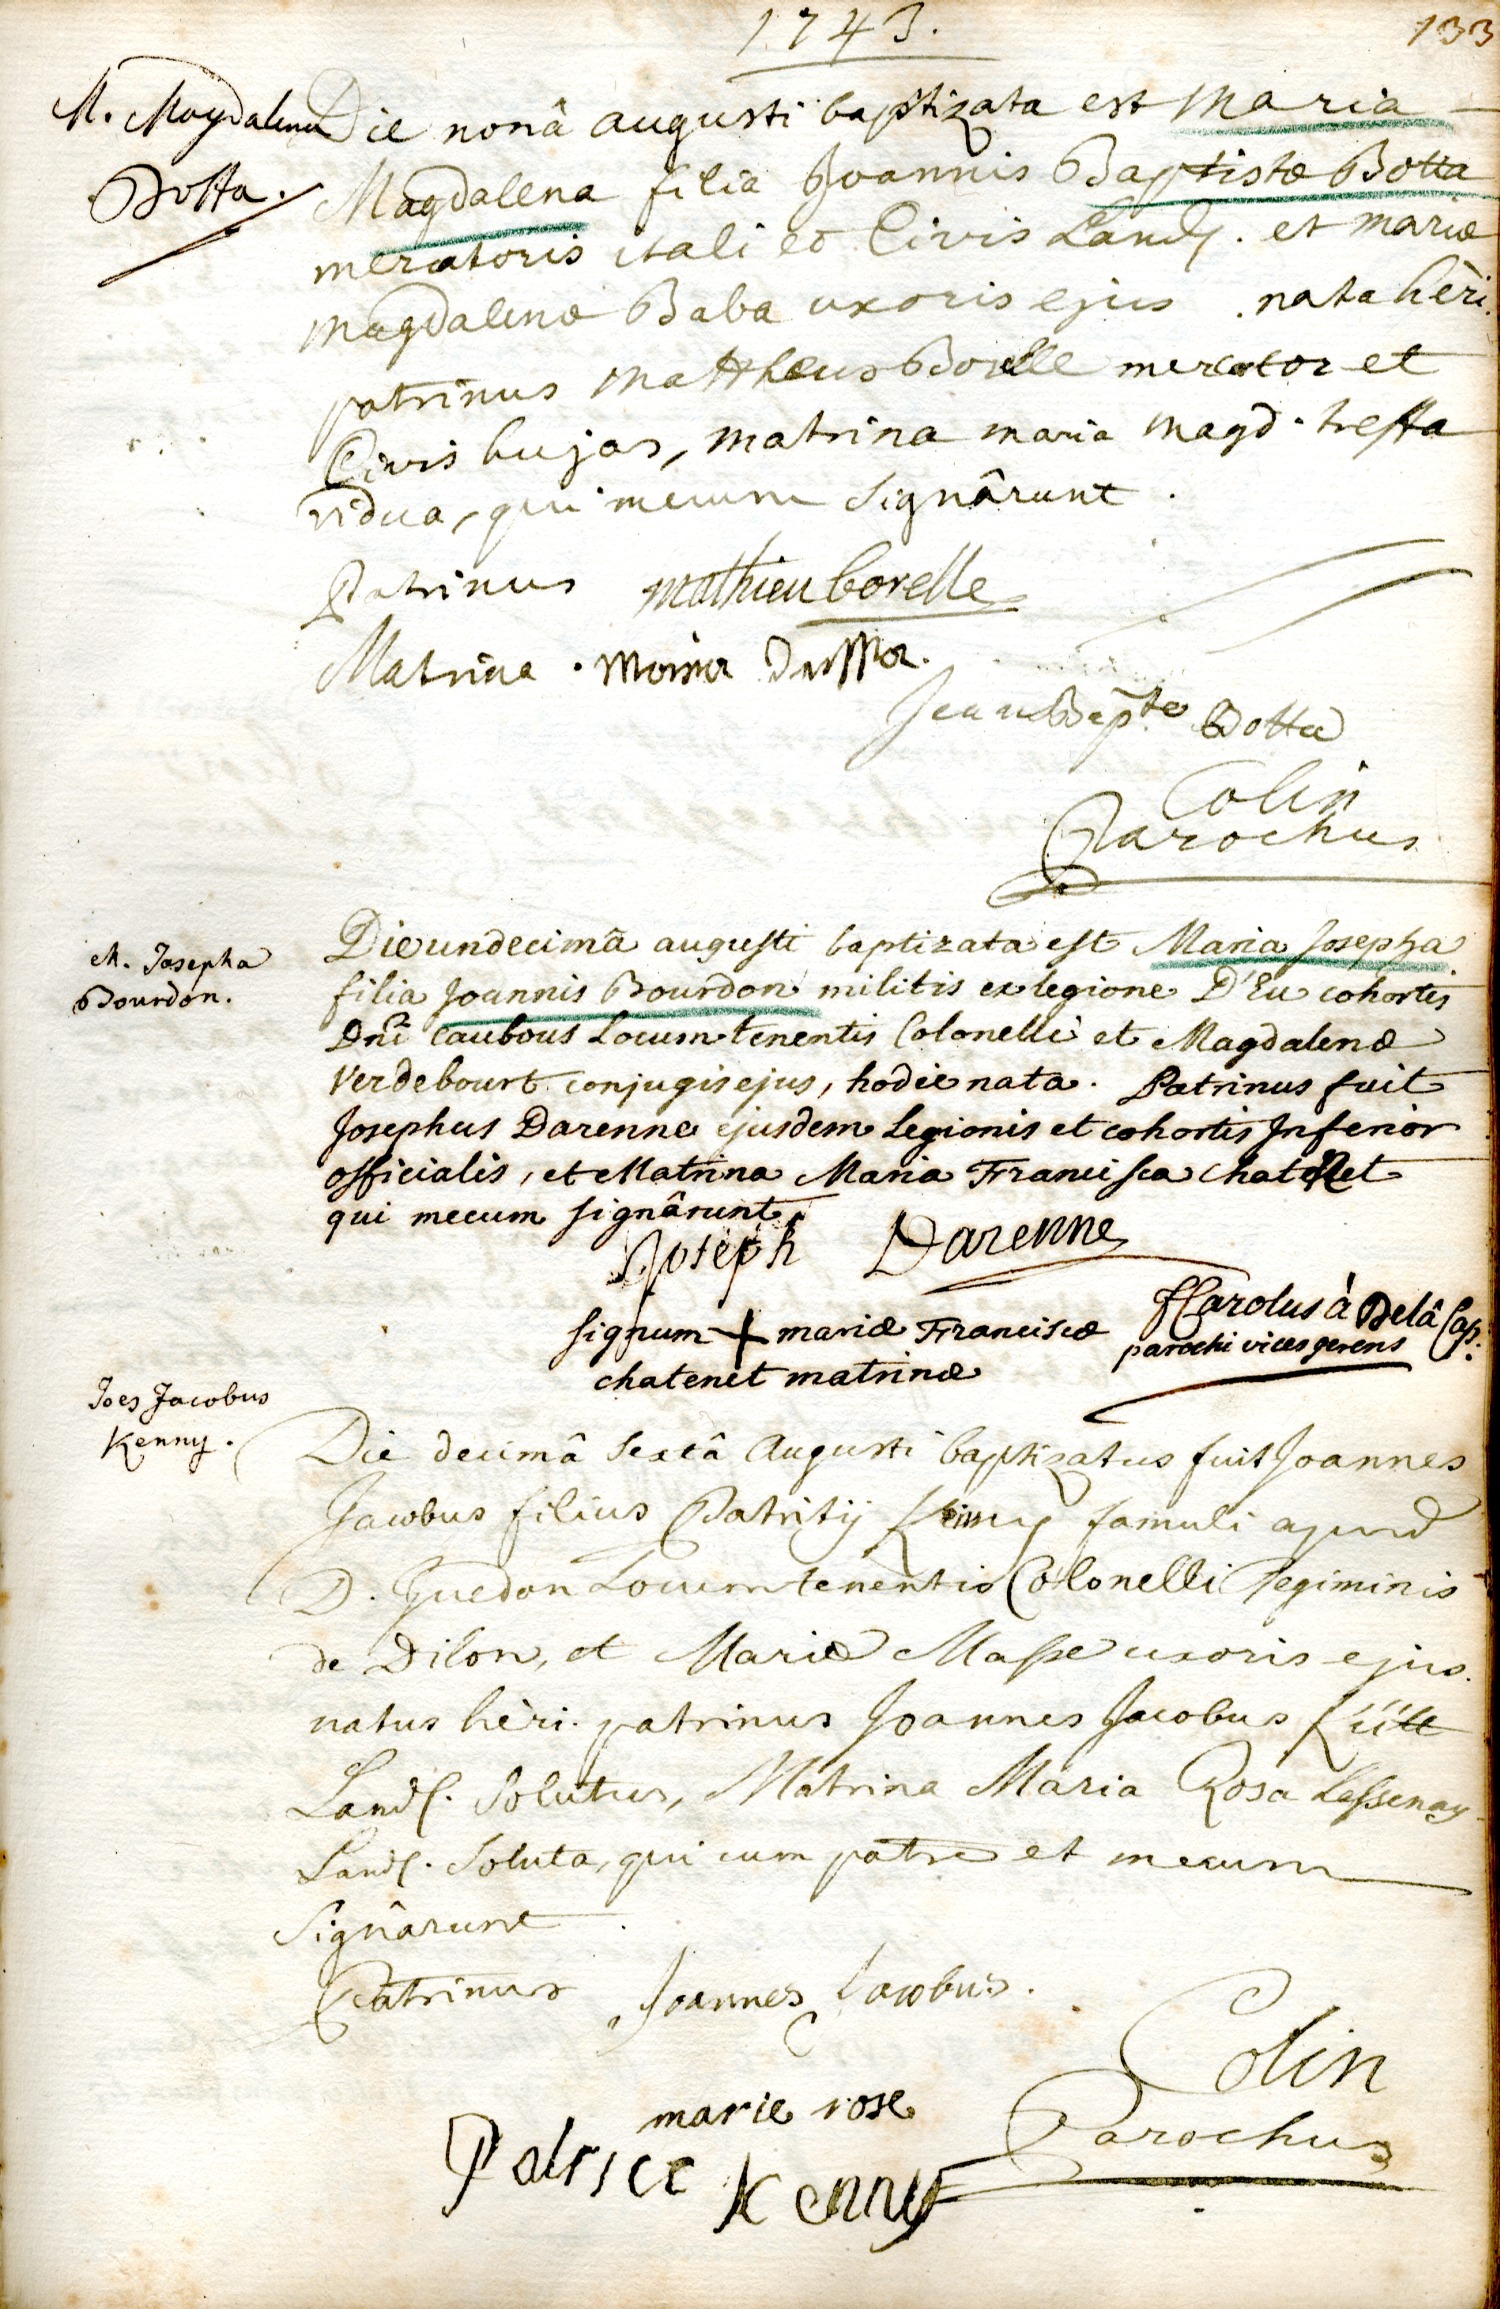 1743.
133
M. Magdalena
Botta.
Die nonâ augusti baptizata est Maria
Magdalena filia Joannis Baptistæ Botta
mercatoris itali et Civis Land. et mariæ
magdalenæ Baba uxoris ejus . nata hèri.
patrinus Matthæus Borelle mercator et
Civis hujas, matrina maria magd. tresta
vidua, qui mecum signârunt.
Patrinus mathieu borelle
Matrina .
Jean Bapte Botta
Colin
Parochus
M. Josepha
Bourdon.
Die undecimâ augusti baptizata est Maria Josepha
filia Joannis Bourdon militis ex legione D'Eu cohortis
Dni Caubous Locum-tenentis Colonelli et Magdalenæ
Verdebourt conjugis ejus, hodie nata. Patrinus fuit
Josephus Darenne ejusdem Legionis et cohortis Inferior
officialis, et Matrina Maria Francisca chatenet
qui mecum signârunt.
Joseph Darenne
signum + mariæ Franciscæ
chatenet matrinæ
f Carolus à Delâ Cap.
parochi vices gerens
Joes Jacobus
Kenny.
Die decimâ Sextâ Augusti baptizatus fuit Joannes
Jacobus filius Patritij Kenny famuli apud
D. Guedon Locumtenentis Colonelli Regiminis
de Dilon, et Mariæ Masse uxoris ejus.
natus hèri. patrinus Joannes Jacobus
Land. Solutus, Matrina Maria Rosa Lassenay
Land. Soluta, qui cum patre et mecum
Signârunt
Patrinus Joannes Jacobus.
marie rose
Patrice Kenny
Colin
Parochus